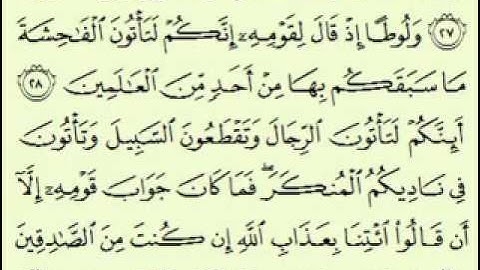 ﴿٢٧﴾ وَلُوطًا إِذْ قَالَ لِقَوْمِهِۦٓ إِنَّكُمْ لَتَأْتُونَ ٱلْفَٰحِشَةَ
مَا سَبَقَكُم بِهَا مِنْ أَحَدٍ مِّنَ ٱلْعَٰلَمِينَ ﴿٢٨﴾
أَئِنَّكُمْ لَتَأْتُونَ ٱلرِّجَالَ وَتَقْطَعُونَ ٱلسَّبِيلَ وَتَأْتُونَ
فِى نَادِيكُمُ ٱلْمُنكَرَ ۖ فَمَا كَانَ جَوَابَ قَوْمِهِۦٓ إِلَّآ
أَن قَالُوا۟ ٱئْتِنَا بِعَذَابِ ٱللَّهِ إِن كُنتَ مِنَ ٱلصَّٰدِقِينَ